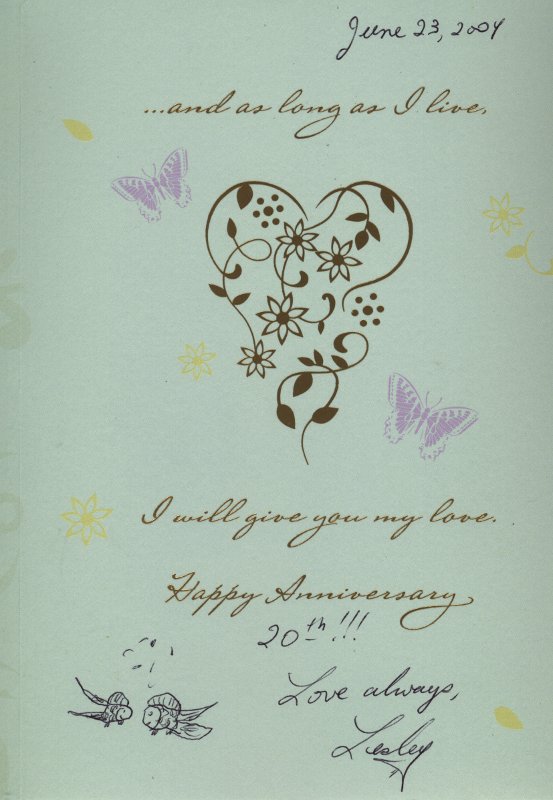 June 23, 2004
...and as long as I live,
I will give you my love.
Happy Anniversary
20th!!!
Love always,
Lesley